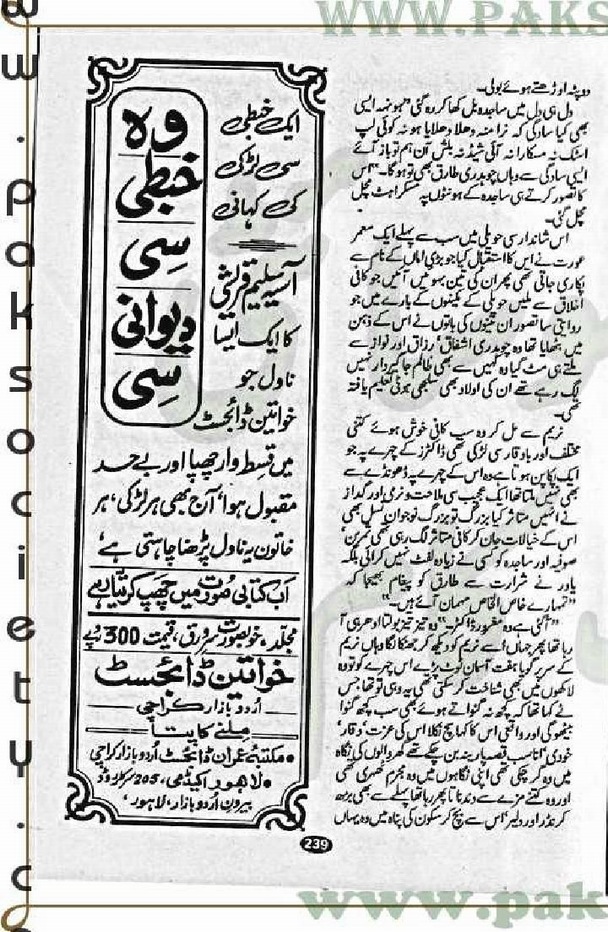 WWW.PAKS
دوپٹہ اوڑھتے ہوئے بولی۔
دل ہی دل میں ساجدہ بل کھا کر رہ گئی "ہونہہ ایسی
بھی کیا سادگی کہ نرا منہ دھلا دھلایا ہو نہ کوئی لپ
اسٹک نہ مسکارا نہ آئی شیڈ نہ بلش آن ہم تو باز آئے
ایسی سادگی سے وہاں چوہدری طارق بھی تو ہو گا۔" اس
کا تصور کرتے ہی ساجدہ کے ہونٹوں پہ مسکراہٹ مچل
مچل گئی۔
اس شاندار سی حویلی میں سب سے پہلے ایک معمر
عورت نے اس کا استقبال کیا جو بڑی اماں کے نام سے
پکاری جاتی تھی پھر ان کی تین بہوئیں آئیں جو کافی
اخلاق سے ملیں حویلی کے مکینوں کے بارے میں جو
روایتی سا تصور ان تینوں کی باتوں نے اس کے ذہن
میں بٹھایا تھا وہ چوہدری اشفاق' رزاق اور نواز سے
ملتے ہی مٹ گیا وہ کہیں سے بھی ظالم جاگیردار نہیں
لگ رہے تھے ان کی اولاد بھی سلجھی ہوئی تعلیم یافتہ
تھی۔
نریم سے مل کر وہ سب کافی خوش ہوئے کتنی
مختلف اور باوقار سی لڑکی تھی ڈاکٹرز کے چہرے پہ جو
ایک روکھا پن ہوتا ہے وہ اس کے چہرے پہ ڈھونڈے سے
بھی نہیں ملتا تھا ایک عجیب سی ملاحت و نرمی اور گداز
نے انہیں متاثر کیا بزرگ تو بزرگ نوجوان نسل بھی
اس کے خیالات جان کر کافی متاثر لگ رہی تھی
صوفیہ اور ساجدہ کو کسی نے زیادہ لفٹ نہیں کرائی بلکہ
یاور نے شرارت سے طارق کو پیغام بھیجا کہ
"تمہارے خاص الخاص مہمان آئے ہیں۔"
"آ گئی ہے وہ مغرور ڈاکٹر۔" وہ تیز تیز بولتا ادھر ہی آ
رہا تھا پھر جہاں اسے نریم کو دیکھ کر جھٹکا لگا وہاں نریم
کے سر پر گویا ہفت آسمان ٹوٹ پڑے اس چہرے کو تو وہ
لاکھوں میں بھی شناخت کر سکتی تھی یہ وہی تو تھا جس
نے کہا تھا کہ کچھ نہ گنواتے ہوئے بھی سب کچھ گنوا
بیٹھو گی اور واقعی اس کا کہا سچ نکلا اس کی عزت' وقار'
خودی' انا سب قصہ پارینہ بن چکے تھے گھر والوں کی نگاہ
میں وہ مر چکی تھی اپنی نگاہوں میں وہ مجرم ٹھہری تھی
اور وہ کتنے مزے سے دندناتا پھر رہا تھا پہلے سے بھی بڑھ
کر نڈر اور دلیر' اس سے بچ کر سکون کی پناہ میں وہ یہاں
ایک خبطی
سی لڑکی
کی کہانی
وہ
خبطی
سی
دیوانی
سی
آسیہ سلیم قریشی
کا ایک ایسا
ناول جو
خواتین ڈائجسٹ
میں قسط وار چھپا اور بے حد
مقبول ہوا' آج بھی ہر لڑکی' ہر
خاتون یہ ناول پڑھنا چاہتی ہے'
اب کتابی صورت میں چھپ کر تیار ہے
مجلد، خوبصورت سرورق، قیمت 300 روپے
خواتین ڈائجسٹ
اُردو بازار کراچی
ملنے کا پتا
• مکتبہ عمران ڈائجسٹ اُردو بازار کراچی
• لاہور اکیڈمی، 205 سرکلر روڈ
بیرون اُردو بازار، لاہور'
239
www.pak
w.paksociety.c